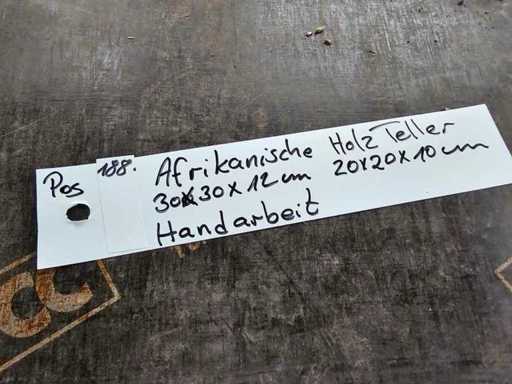 Pos 188. Afrikanische Holz Teller
30x30x12cm 20x20x10cm
Handarbeit
CC